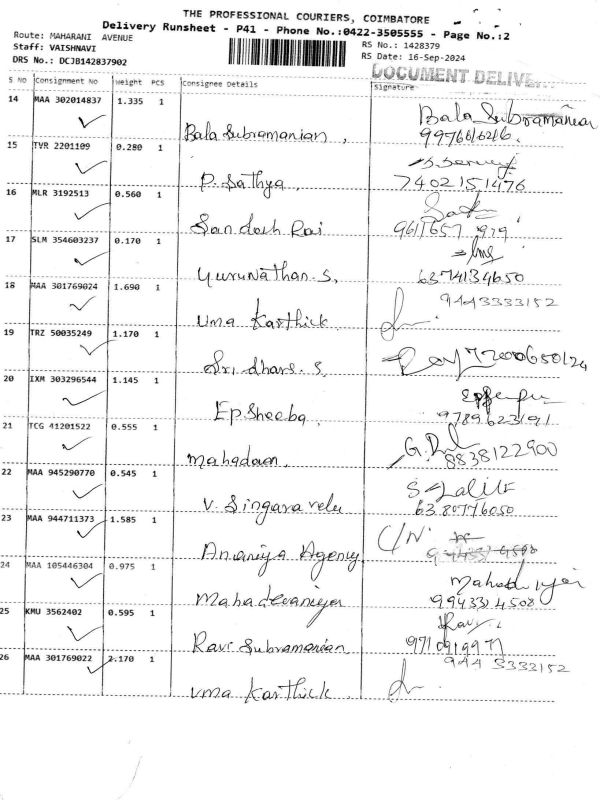 THE PROFESSIONAL COURIERS, COIMBATORE
Delivery Runsheet - P41 - Phone No.:0422-3505555 - Page No.:2
Route: MAHARANI AVENUE
RS No.: 1428379
Staff: VAISHNAVI
RS Date: 16-Sep-2024
DRS No.: DCJB142837902
DOCUMENT DELIVE
S NO Consignment No Weight PCS Consignee Details Signature
14 MAA 302014837 1.335 1
Bala Subramanian, Bala Subramanian
9976616216.
15 TVR 2201109 0.280 1
P. Sathya, 7402151476
16 MLR 3192513 0.560 1
Sandosh Rai 9611657 919
17 SLM 354603237 0.170 1
Gurunathan.S, 6374134650
18 MAA 301769024 1.690 1
9443333152
Uma Karthick
19 TRZ 50035249 1.170 1
Sri dhars. S
20 IXM 303296544 1.145 1
EP. Sheeba, 9789623191
21 TCG 41201522 0.555 1
8838122900
22 MAA 945290770 0.545 1
S. Lalith
V. Singaravelu 6380776050
23 MAA 944711373 1.585 1
C/N.
Ananiya Agency
24 MAA 105446304 0.975 1
Mahadevaniyer 9943314508
25 KMU 3562402 0.595 1
Ravi
Ravi Subramanian 9710919971
26 MAA 301769022 2.170 1
9443333152
Uma Karthick